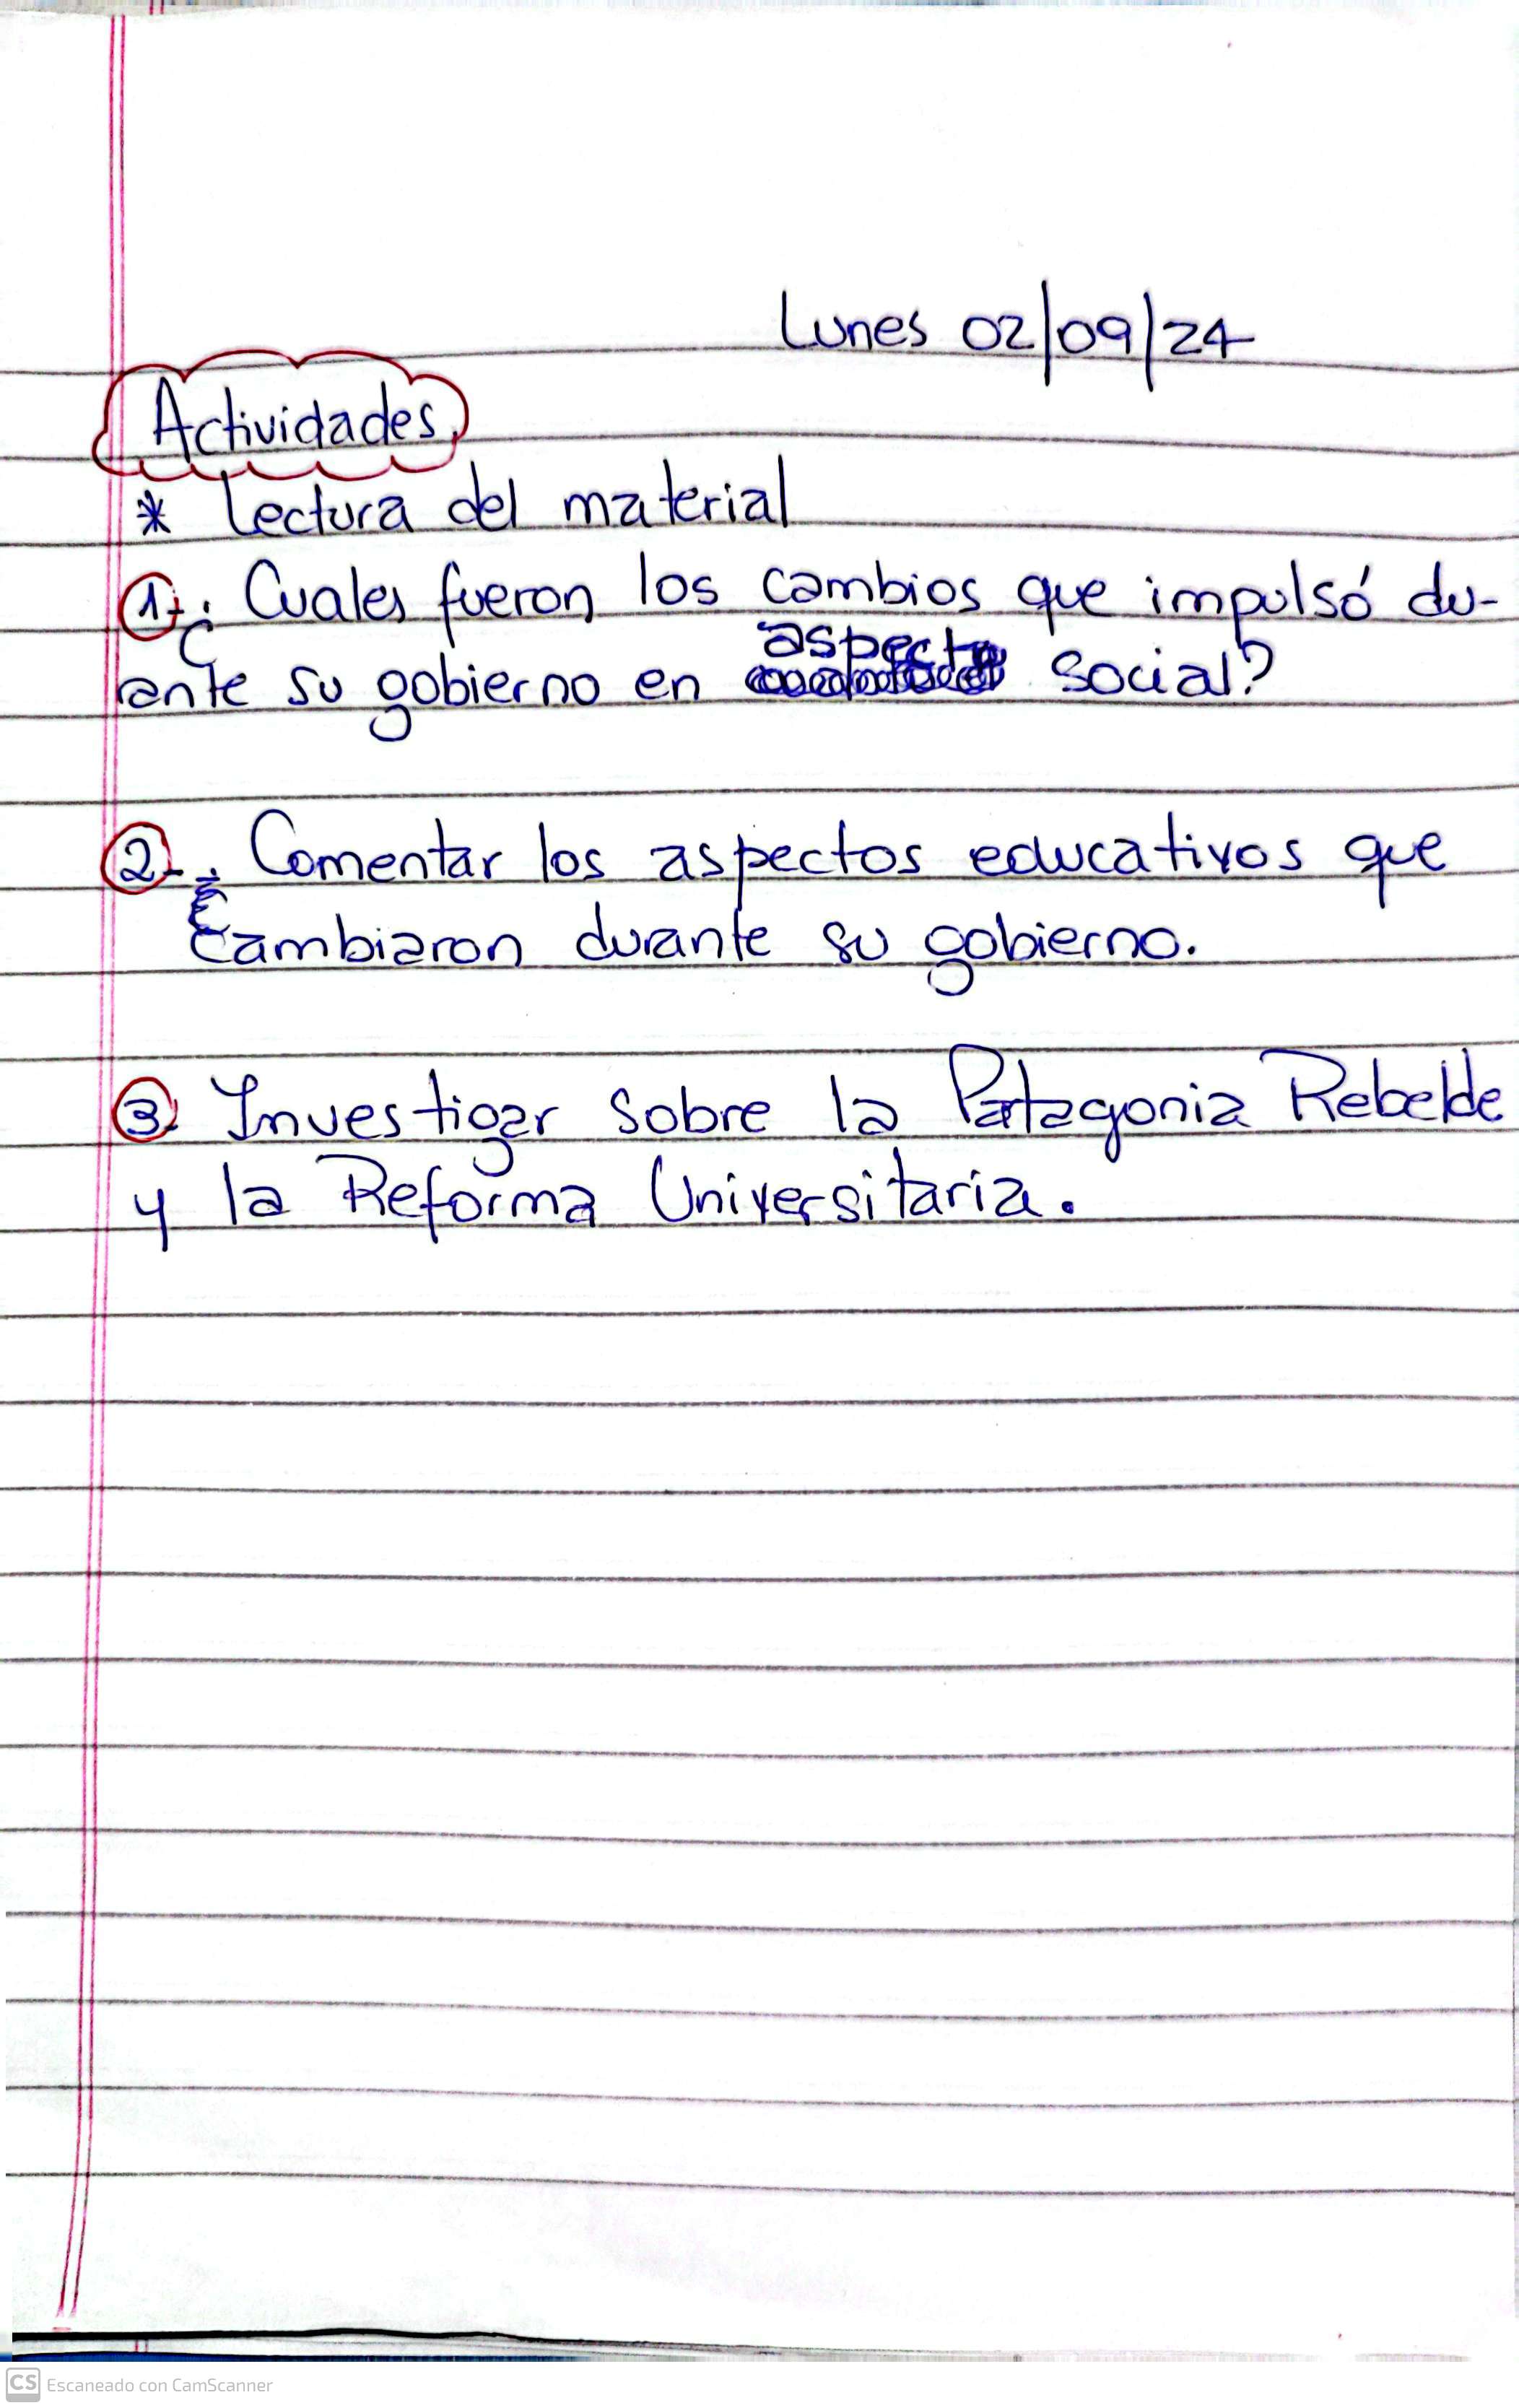 Lunes 02/09/24
Actividades
* Lectura del material
1-¿Cuales fueron los cambios que impulsó du-
rante su gobierno en aspecto social?
2- Comentar los aspectos educativos que
cambiaron durante su gobierno.
3. Investigar sobre la Patagonia Rebelde
y la Reforma Universitaria.
CS Escaneado con CamScanner